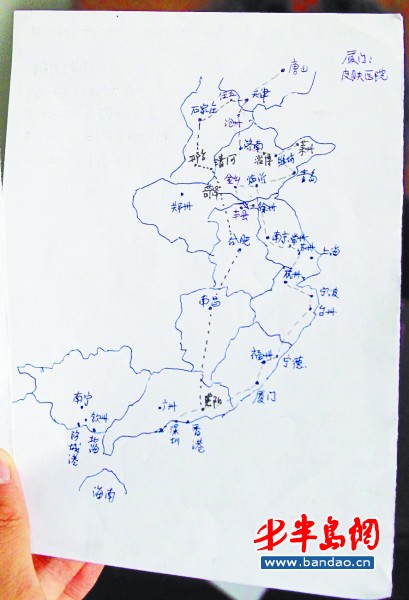 厦门:
皮肤医院
唐山
天津
石家庄
沧州
济南
莱州
邢台
清河
淄博
潍坊
青岛
菏泽
临沂
郑州
丰县
徐州
合肥
南京
常州
苏州
上海
杭州
宁波
台州
南昌
福州
宁德
厦门
南宁
广州
钦州
北海
防城港
深圳
香港
海南
半岛網
www.bandao.cn